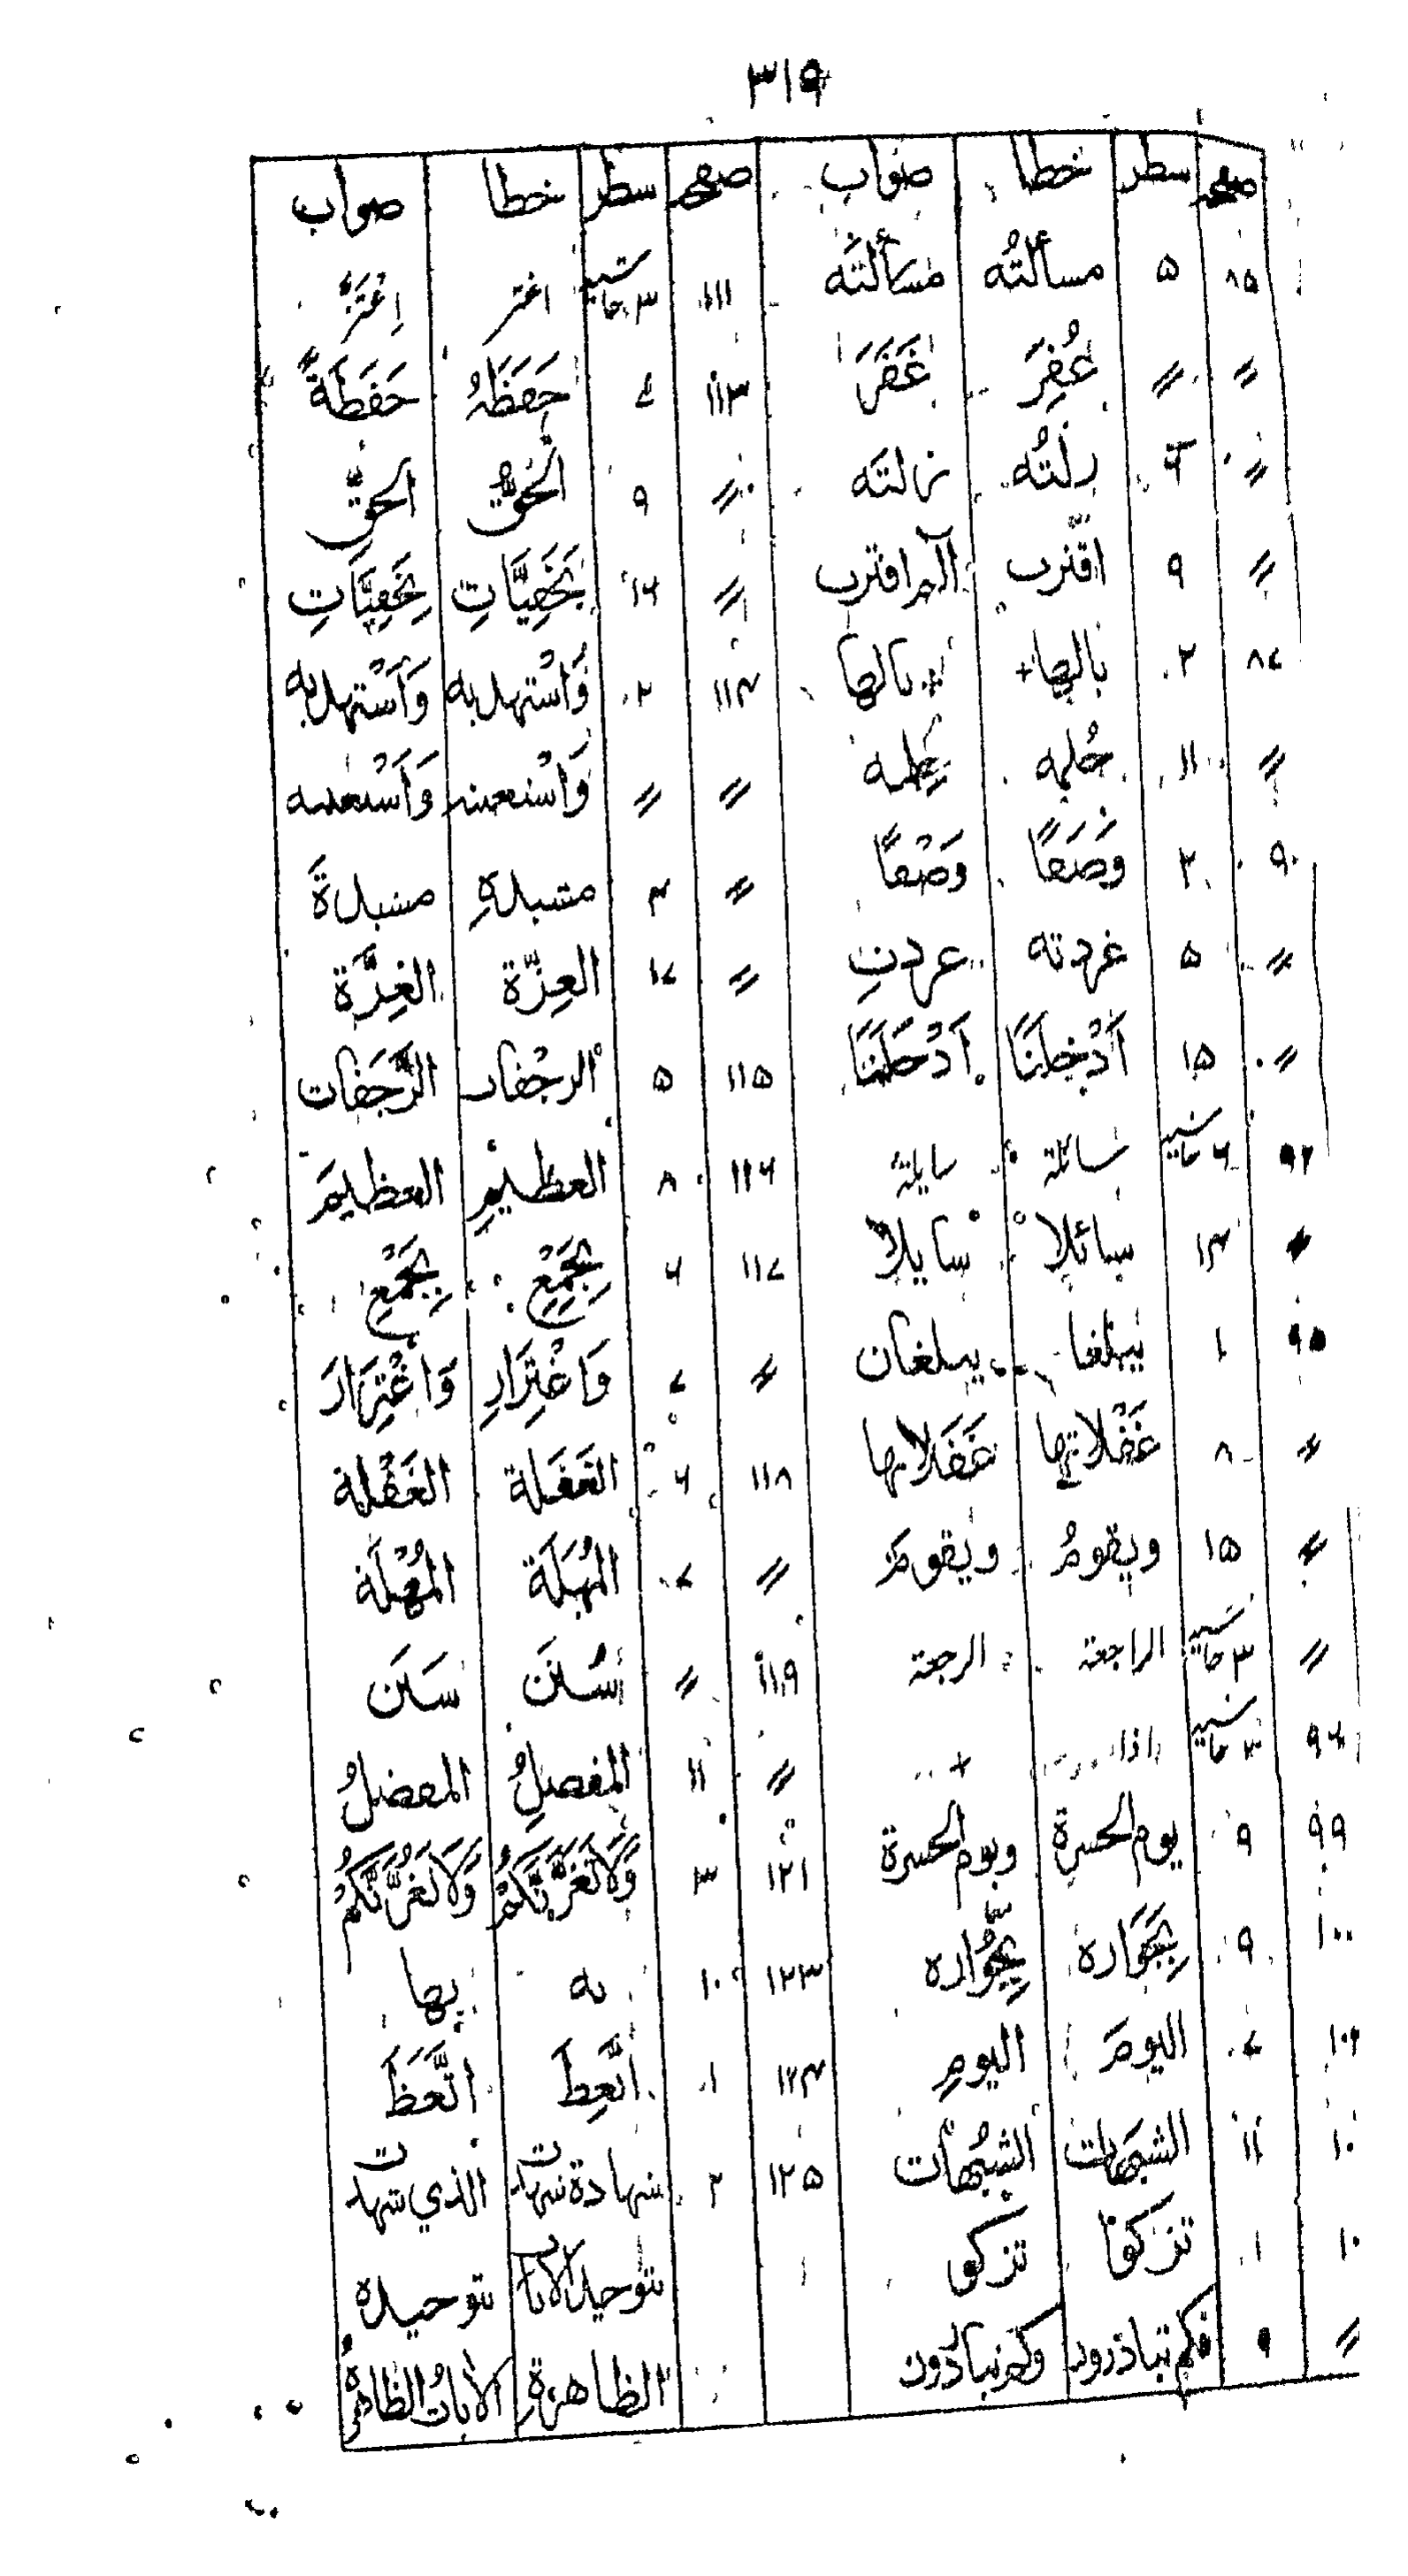 ٣١٩
صفحہ سطر خطا صواب صفحہ سطر خطا صواب
٨٥ ۵ مسألتُه مسألتَه ١١١ ٣ حاشیہ اغتر اِغْتَرَّ
〃 〃 غُفِرَ غَفَرَ ١١٣ ٧ حَفَظَهُ حَفَظَةً
〃 ٦ زلتُه زلتَه 〃 ٩ الحَقُّ الحقَّ
〃 ٩ اقترب آلم اقترب 〃 ١٦ بَخَفِيَّاتِ بِخَفِيَّاتِ
٨٧ ٢ بالها+ +بالها ١١٤ ٢ وَاسْتهدیه وَأَسْتهدیه
〃 ١١ حُلمه حِلمه 〃 〃 وَاسْتعینه وَأَسْتعینه
٩٠ ٢ وَصَفًا وَصْفًا 〃 ٤ مشیدهِ مشیدةً
〃 ۵ غردته غردتِ 〃 ١٧ العِزّة الغِرَّة
〃 ١۵ اَدْخِلَنَا اَدْخَلَنَا ١١۵ ۵ الرجْفات الرَّجَفات
٩٢ ٦ حاشیہ سائلة سایلة ١١٦ ٨ العظیمِ العظیمَ
〃 ١٤ سائلا سایلا ١١٧ ٦ بِجَمِیْعِ بِجَمْعِ
٩۵ ١ یبلغا یبلغان 〃 ٧ وَاغْتِرَارِ وَاغْتِرَارَ
〃 ٨ غَفْلاتها غَفَلاتها ١١٨ ٦ الغَفَلة الغَفْلة
〃 ١۵ ویقومُ ویقومَ 〃 ٧ المُهَلَة المُهْلَة
〃 ٣ حاشیہ الراجعة الرجعة ١١٩ 〃 سُنَن سَنَن
٩٦ ٣ حاشیہ اذا + 〃 ١١ المفصلِ المفضلُ
٩٩ ٩ یوم الحسرة ویوم الحسرة ١٢١ ٣ وَلَا تَغُرَّنَّكُمْ وَلَا یَغُرَّنَّكُمْ
١٠٠ ٩ بِجَوَاره بِجُوَاره ١٢٣ ١٠ به بها
١٠٢ ٧ الیومَ الیومِ ١٢٤ ١ اتَّعِظَ اتَّعَظَ
١٠ ١١ الشبَهات الشبُهات ١٢۵ ٢ شهادة شهدت الذي شهدت
١٠ ١ تزکوا تزکو بتوحیده الآیات بتوحیده
〃 ٩ فکم تبادرون وکم تبادرون الظاهرةِ الآیاتُ الظاهرةُ